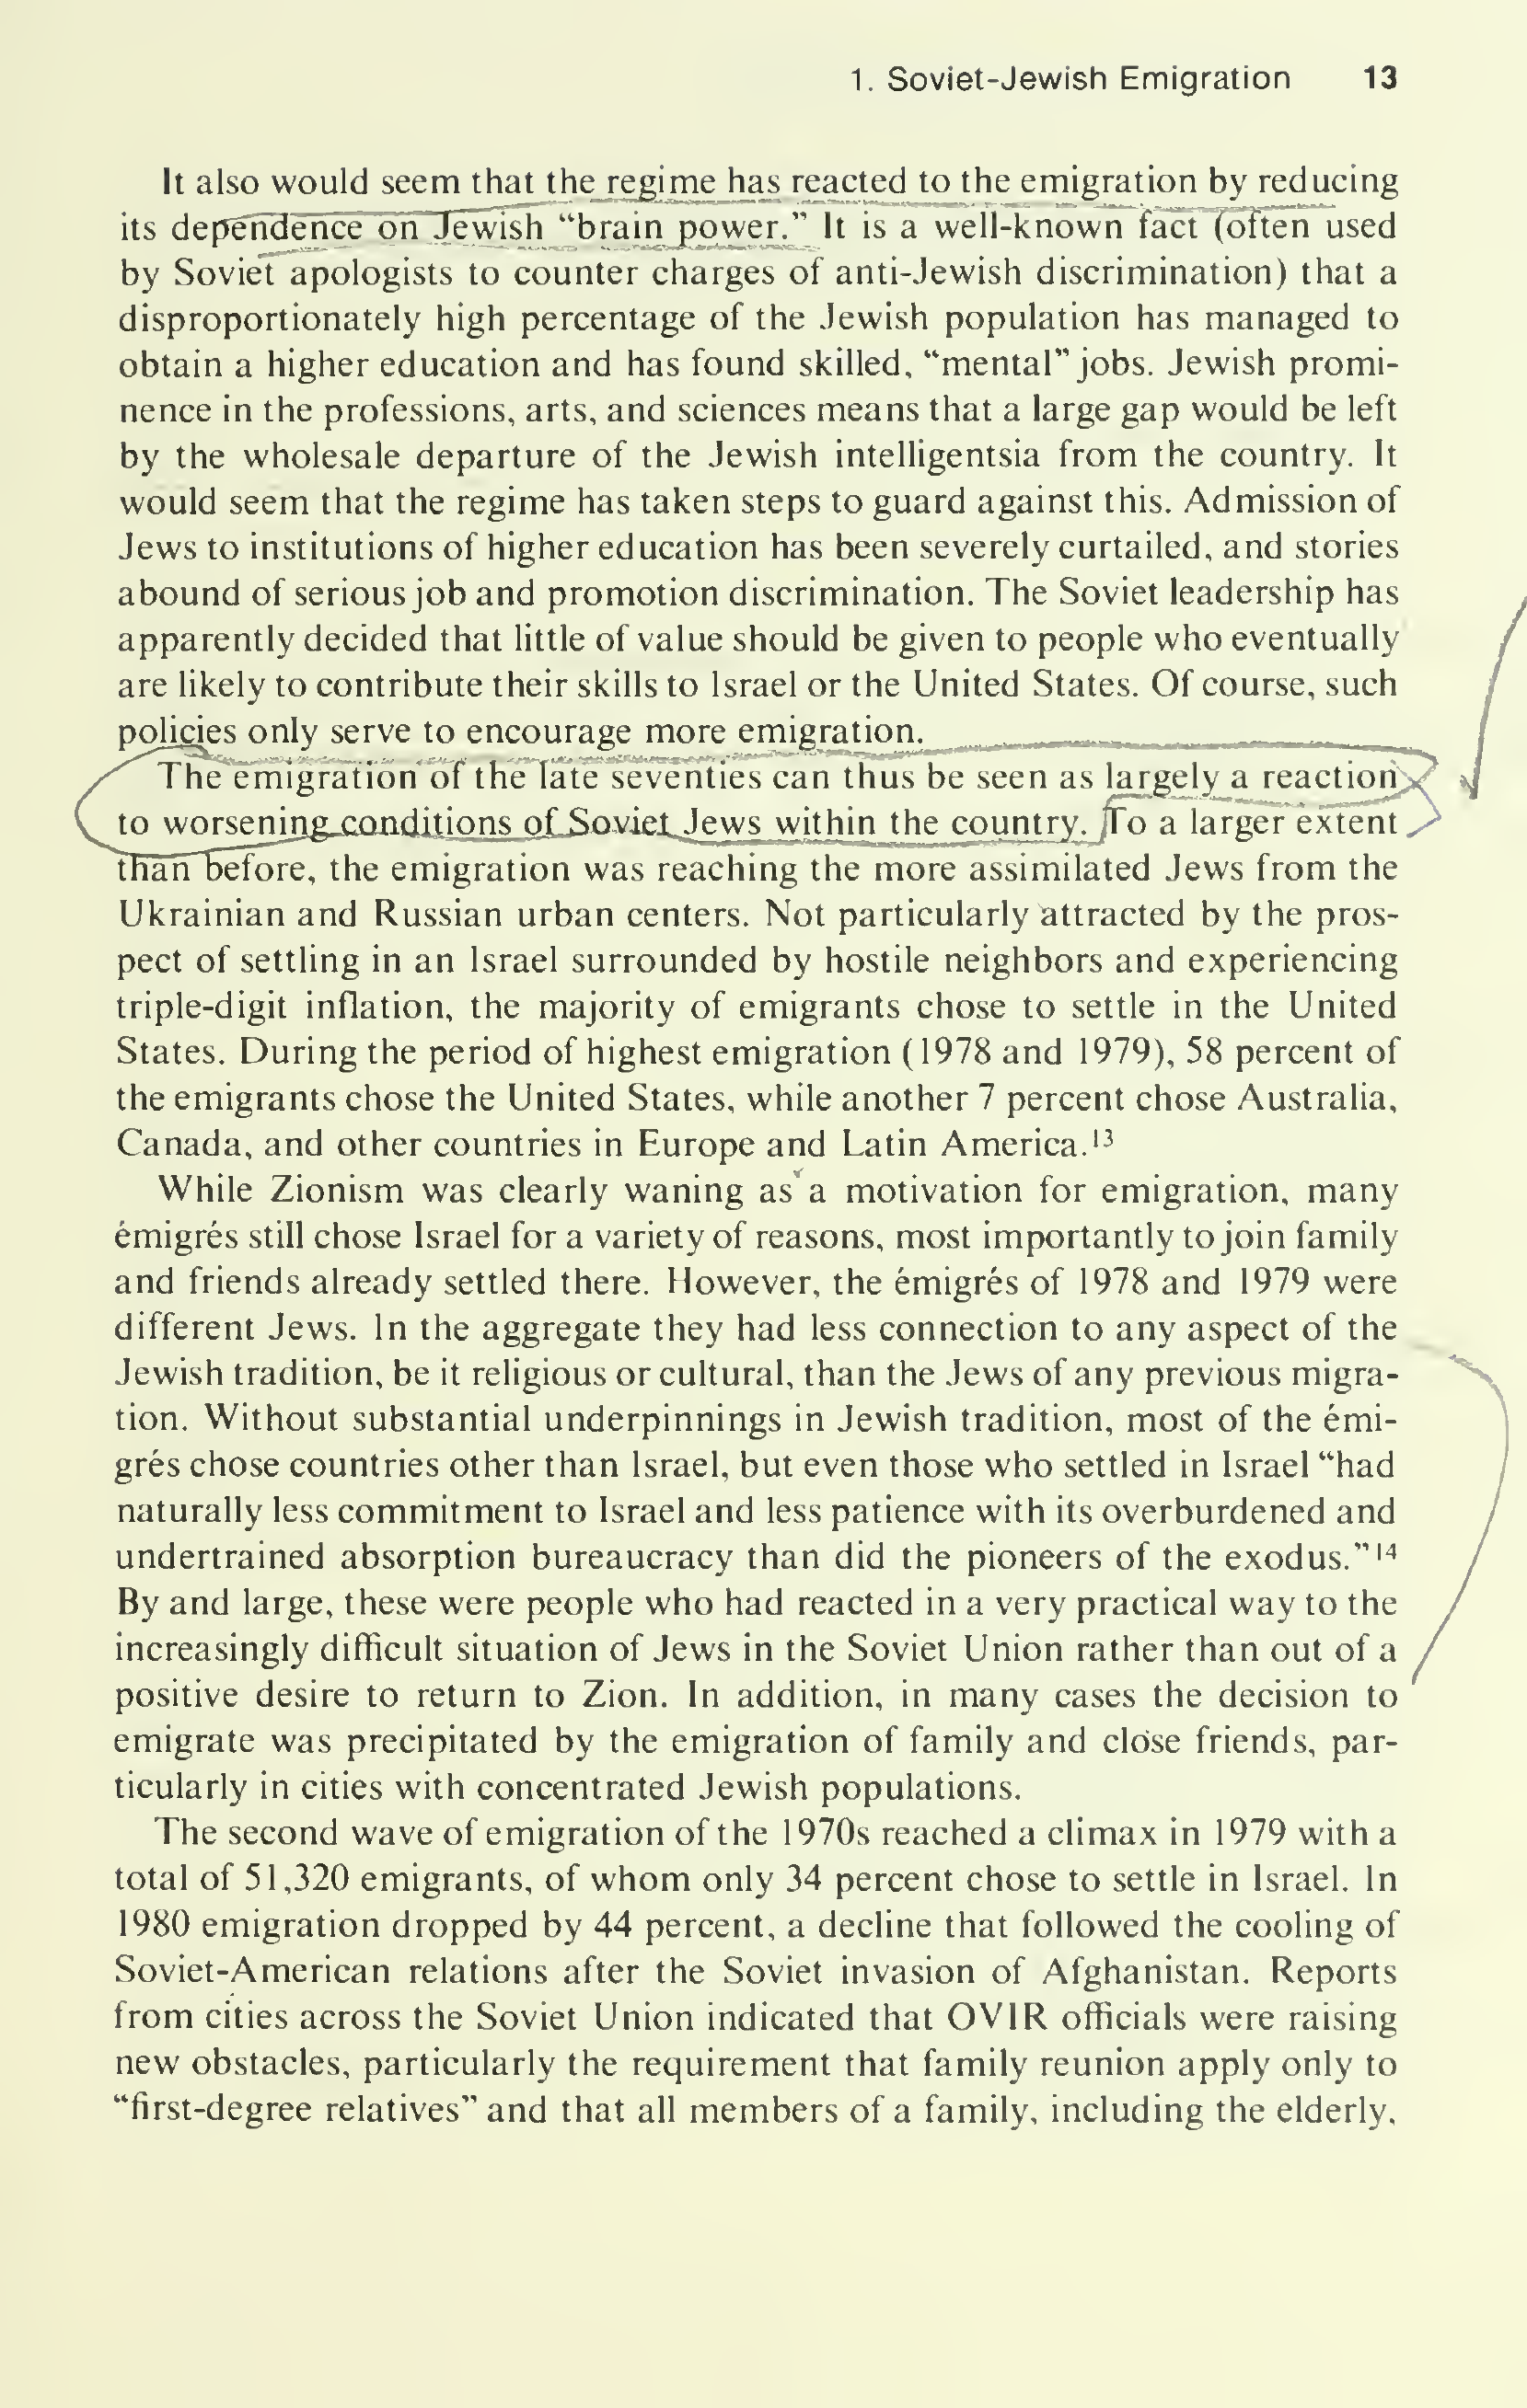 1. Soviet-Jewish Emigration 13
It also would seem that the regime has reacted to the emigration by reducing
its dependence on Jewish “brain power.” It is a well-known fact (often used
by Soviet apologists to counter charges of anti-Jewish discrimination) that a
disproportionately high percentage of the Jewish population has managed to
obtain a higher education and has found skilled, “mental” jobs. Jewish promi-
nence in the professions, arts, and sciences means that a large gap would be left
by the wholesale departure of the Jewish intelligentsia from the country. It
would seem that the regime has taken steps to guard against this. Admission of
Jews to institutions of higher education has been severely curtailed, and stories
abound of serious job and promotion discrimination. The Soviet leadership has
apparently decided that little of value should be given to people who eventually
are likely to contribute their skills to Israel or the United States. Of course, such
policies only serve to encourage more emigration.
The emigration of the late seventies can thus be seen as largely a reaction
to worsening conditions of Soviet Jews within the country. To a larger extent
than before, the emigration was reaching the more assimilated Jews from the
Ukrainian and Russian urban centers. Not particularly attracted by the pros-
pect of settling in an Israel surrounded by hostile neighbors and experiencing
triple-digit inflation, the majority of emigrants chose to settle in the United
States. During the period of highest emigration (1978 and 1979), 58 percent of
the emigrants chose the United States, while another 7 percent chose Australia,
Canada, and other countries in Europe and Latin America.¹³
While Zionism was clearly waning as a motivation for emigration, many
émigrés still chose Israel for a variety of reasons, most importantly to join family
and friends already settled there. However, the émigrés of 1978 and 1979 were
different Jews. In the aggregate they had less connection to any aspect of the
Jewish tradition, be it religious or cultural, than the Jews of any previous migra-
tion. Without substantial underpinnings in Jewish tradition, most of the émi-
grés chose countries other than Israel, but even those who settled in Israel “had
naturally less commitment to Israel and less patience with its overburdened and
undertrained absorption bureaucracy than did the pioneers of the exodus.”¹⁴
By and large, these were people who had reacted in a very practical way to the
increasingly difficult situation of Jews in the Soviet Union rather than out of a
positive desire to return to Zion. In addition, in many cases the decision to
emigrate was precipitated by the emigration of family and close friends, par-
ticularly in cities with concentrated Jewish populations.
The second wave of emigration of the 1970s reached a climax in 1979 with a
total of 51,320 emigrants, of whom only 34 percent chose to settle in Israel. In
1980 emigration dropped by 44 percent, a decline that followed the cooling of
Soviet-American relations after the Soviet invasion of Afghanistan. Reports
from cities across the Soviet Union indicated that OVIR officials were raising
new obstacles, particularly the requirement that family reunion apply only to
“first-degree relatives” and that all members of a family, including the elderly,